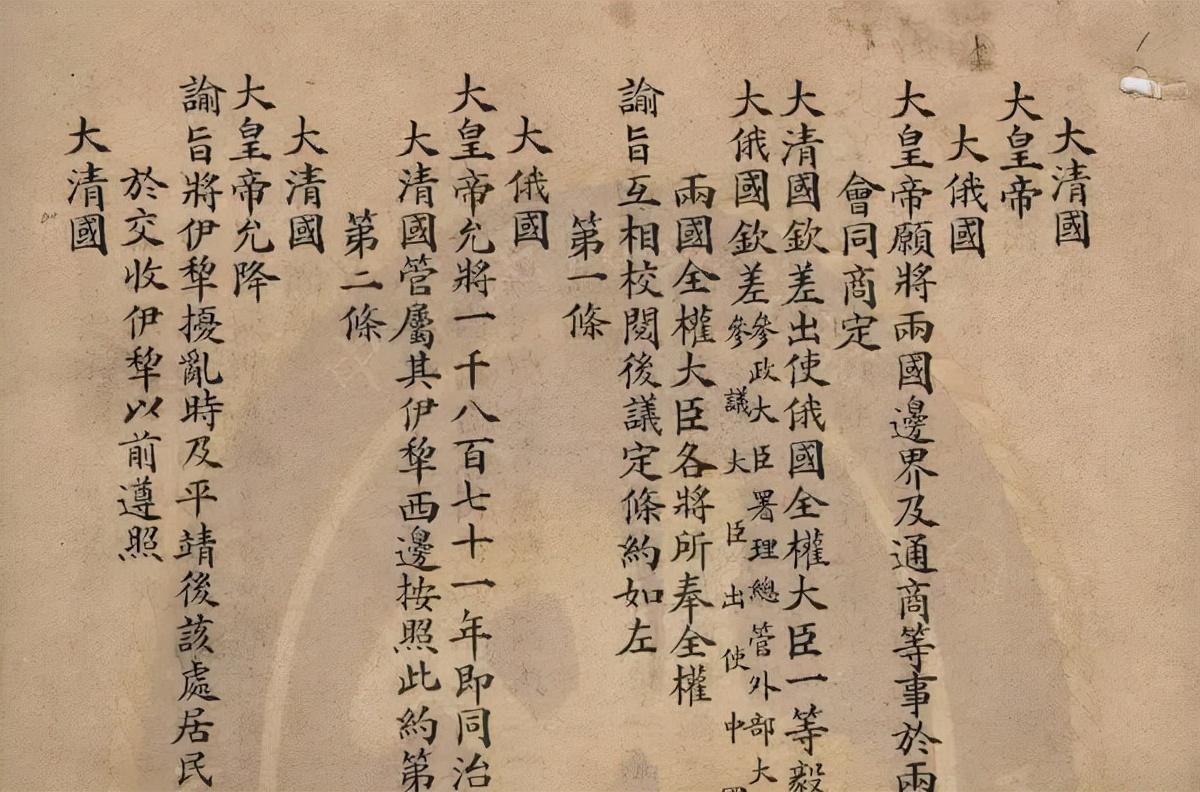 大清國
大皇帝
大俄國
大皇帝願將兩國邊界及通商等事於兩
會同商定
大清國欽差出使俄國全權大臣一等毅
大俄國欽差參政大臣署理總管外部大
參議大臣出使中
兩國全權大臣各將所奉全權
諭旨互相校閱後議定條約如左
第一條
大俄國
大皇帝允將一千八百七十一年即同治
大清國管屬其伊犂西邊按照此約第
第二條
大清國
大皇帝允降
諭旨將伊犂擾亂時及平靖後該處居民
於交收伊犂以前遵照
大清國